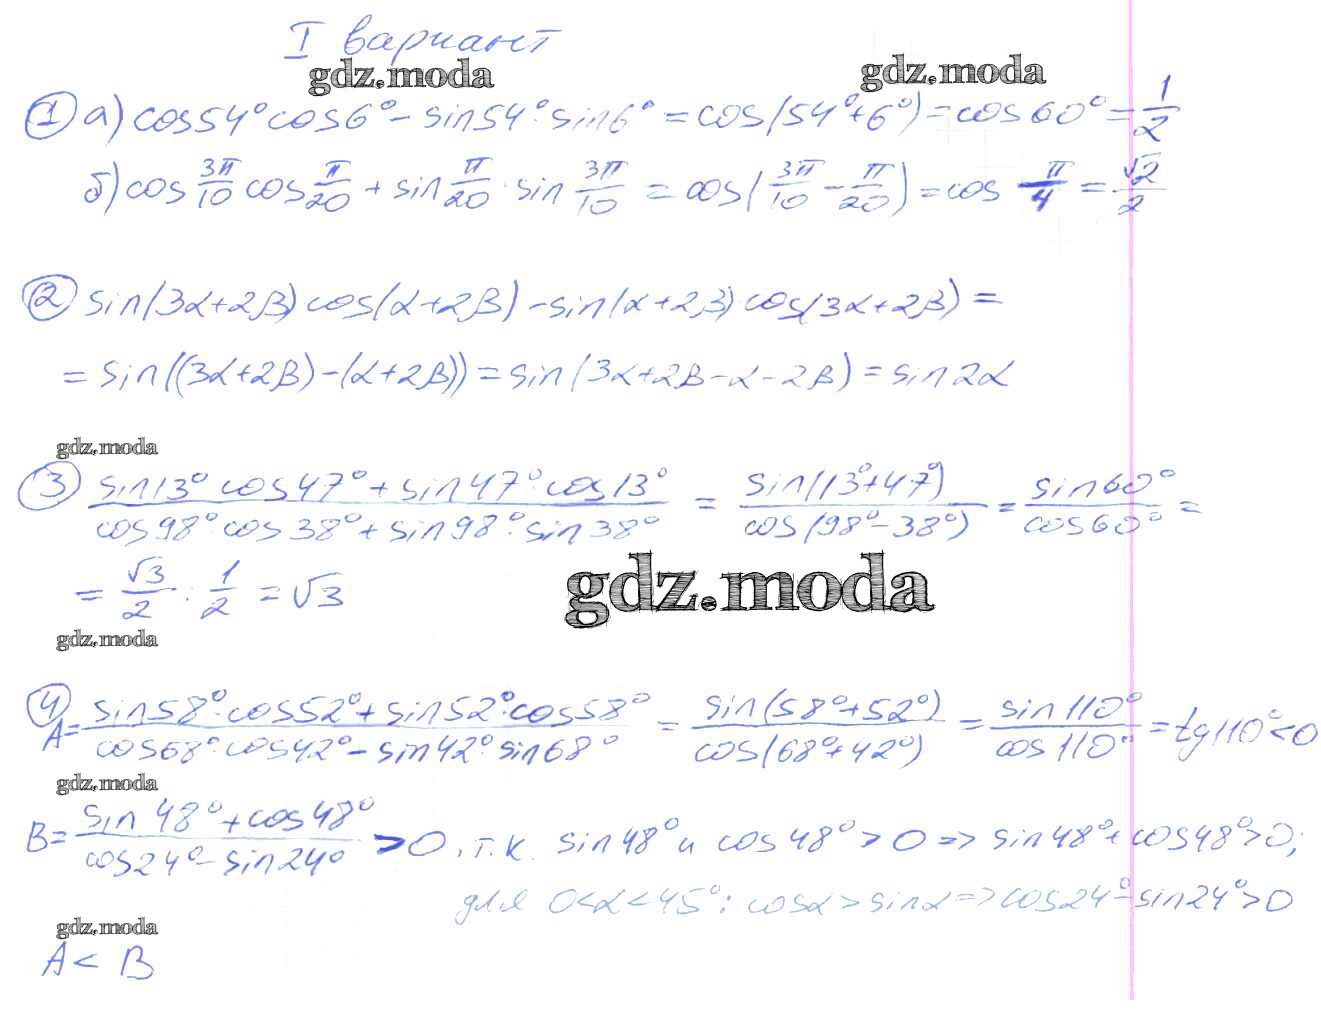 I вариант
gdz.moda gdz.moda
① а) cos54° cos6° - sin54°·sin6° = cos(54°+6°) = cos60° = 1/2
б) cos 3π/10 cos π/20 + sin π/20 · sin 3π/10 = cos(3π/10 - π/20) = cos π/4 = √2/2
② sin(3α+2β) cos(α+2β) - sin(α+2β) cos(3α+2β) =
= sin((3α+2β)-(α+2β)) = sin(3α+2β-α-2β) = sin2α
gdz.moda
③ (sin13° cos47° + sin47°·cos13°)/(cos98°·cos38° + sin98°·sin38°) = sin(13°+47°)/cos(98°-38°) = sin60°/cos60° =
= √3/2 : 1/2 = √3
gdz.moda
gdz.moda
④ A = (sin58°·cos52° + sin52°·cos58°)/(cos68°·cos42° - sin42°·sin68°) = sin(58°+52°)/cos(68°+42°) = sin110°/cos110° = tg110° < 0
gdz.moda
B = (sin48° + cos48°)/(cos24° - sin24°) > 0, т.к. sin48° и cos48° > 0 => sin48° + cos48° > 0;
для 0<α<45°: cosα > sinα => cos24° - sin24° > 0
gdz.moda
A < B